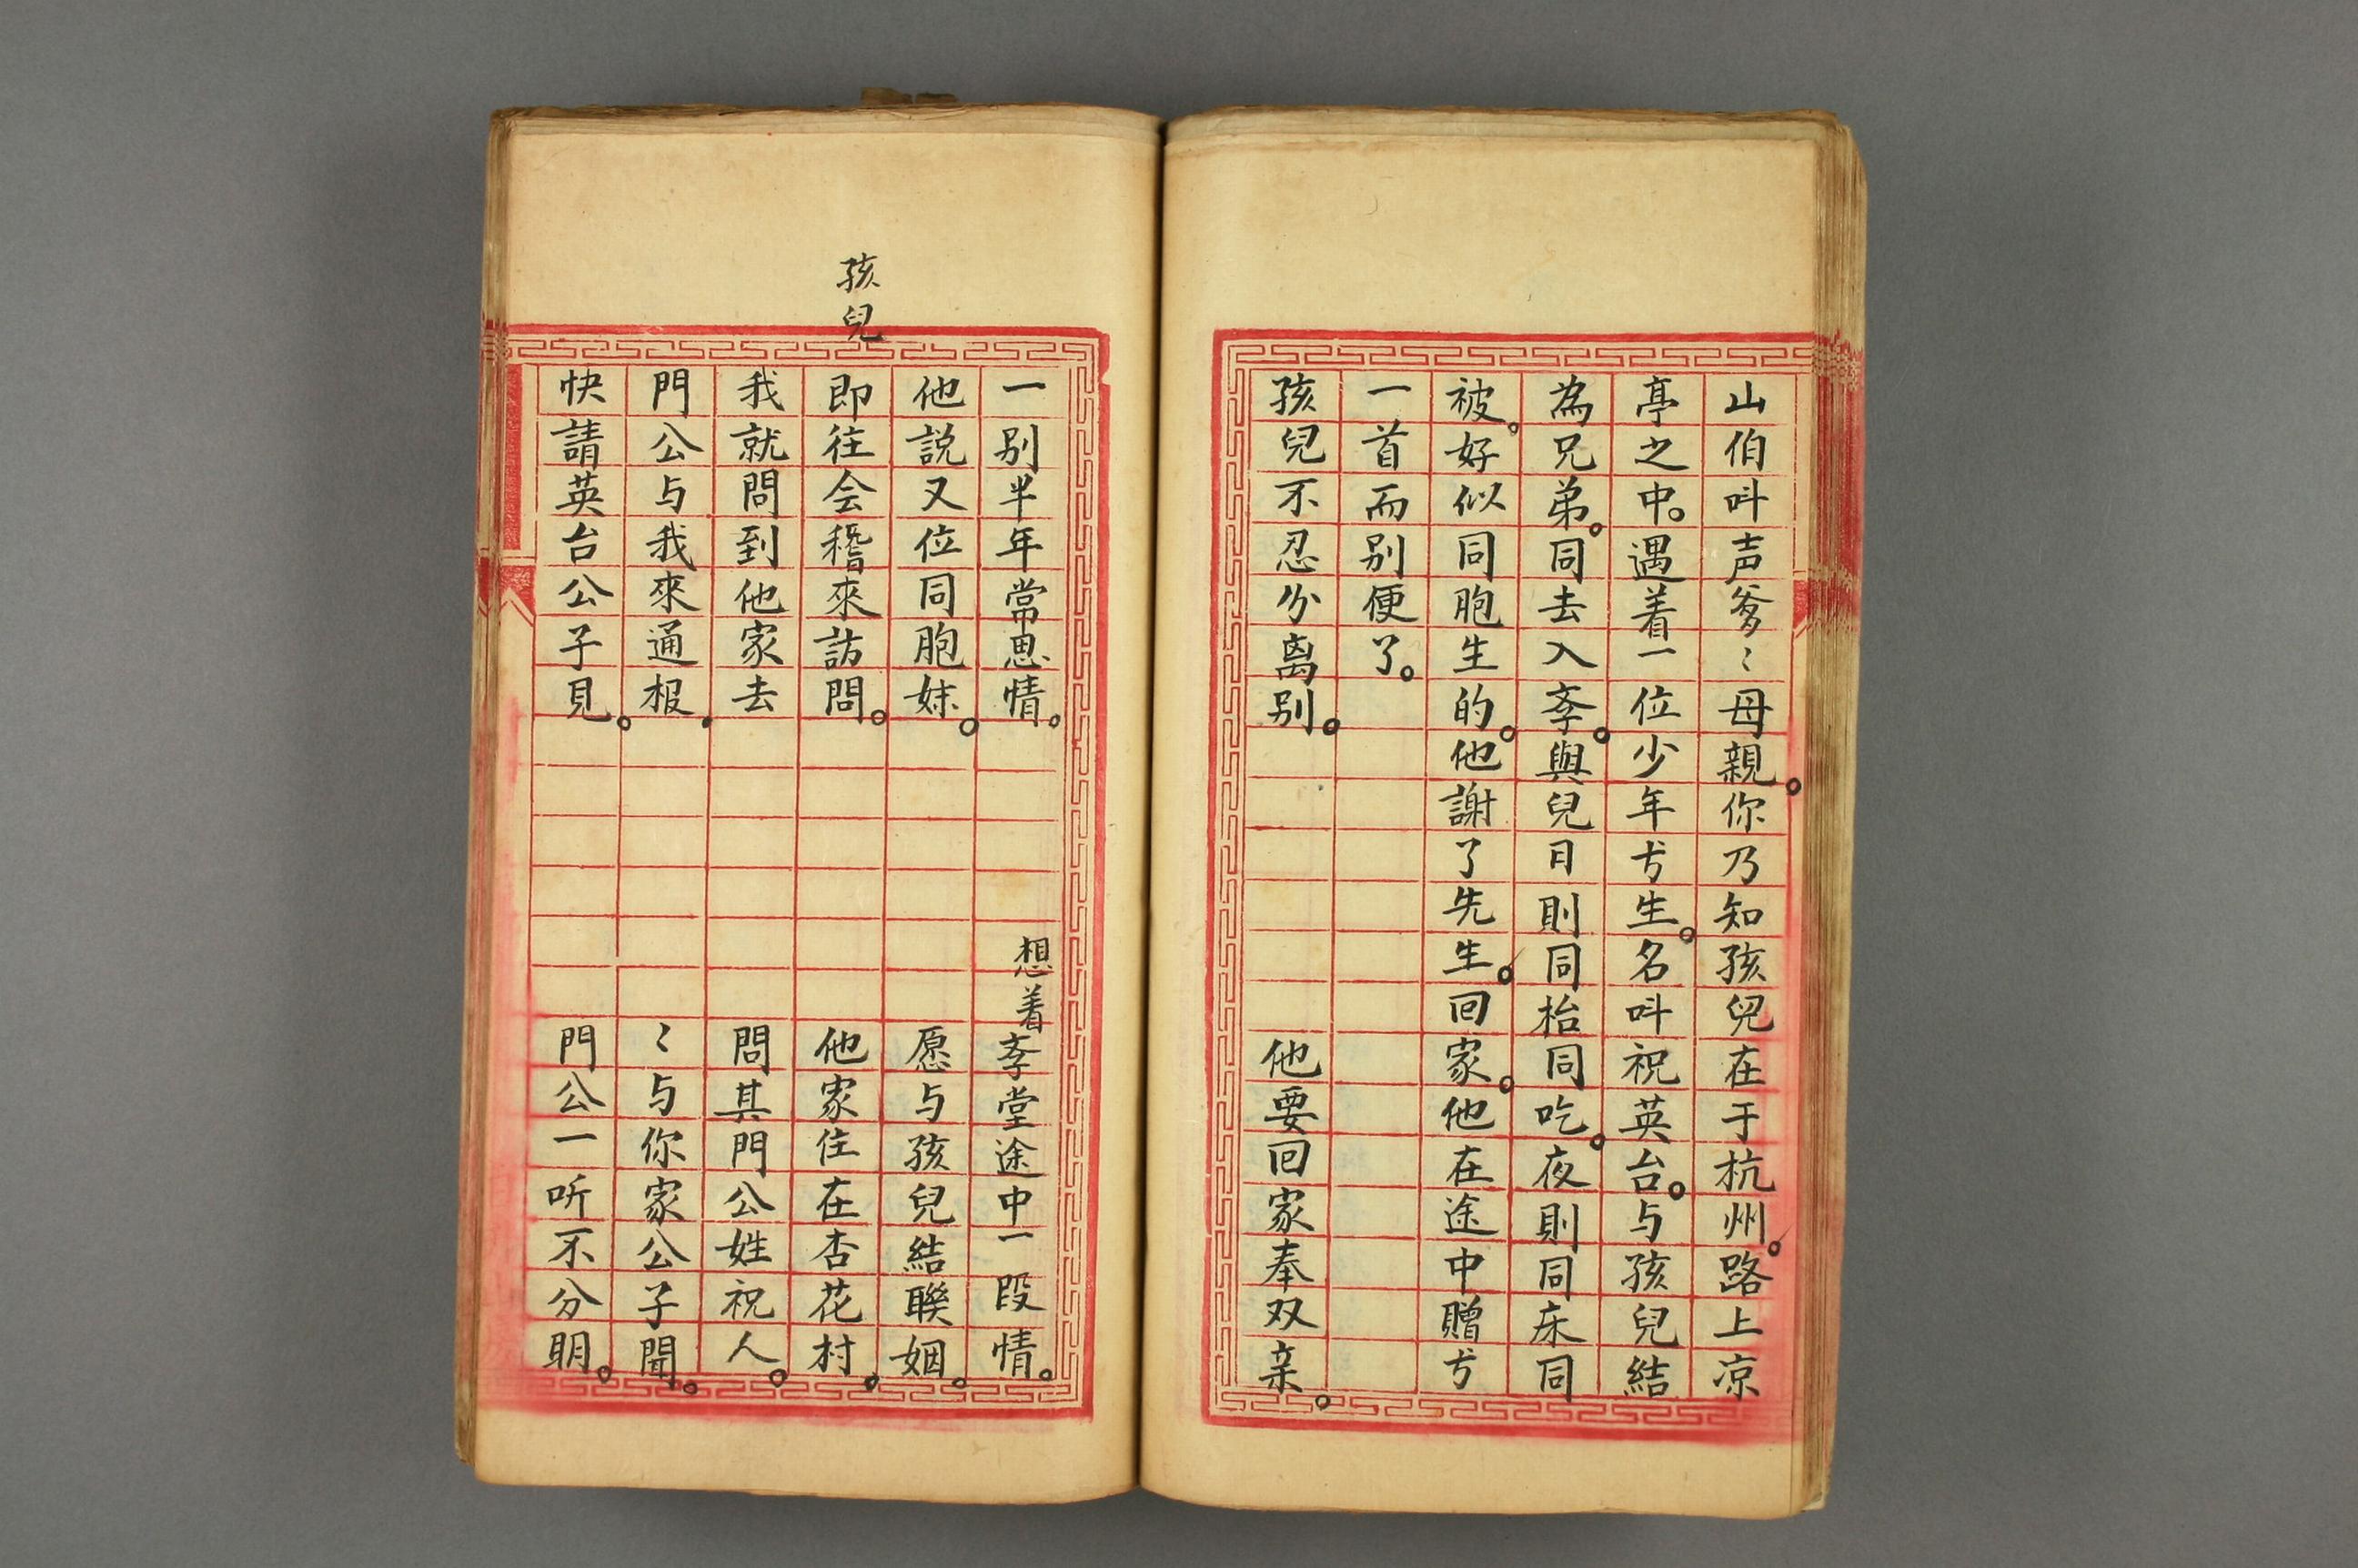 山伯叫声爹〻母親。你乃知孩兒在于杭州。路上凉
亭之中。遇着一位少年㐧生。名叫祝英台。与孩兒結
為兄弟。同去入斈。與兒日則同枱同吃。夜則同床同
被。好似同胞生的。他謝了先生。回家。他在途中贈㐧
一首而别便了。
孩兒不忍分离别。 他要回家奉双亲。
一别半年常思情。 想着斈堂途中一段情。
他説又位同胞妹。 愿与孩兒結聯姻。
孩兒
即往会稽來訪問。 他家住在杏花村。
我就問到他家去 問其門公姓祝人。
門公与我來通报。 〻与你家公子聞。
快請英台公子見。 門公一听不分明。